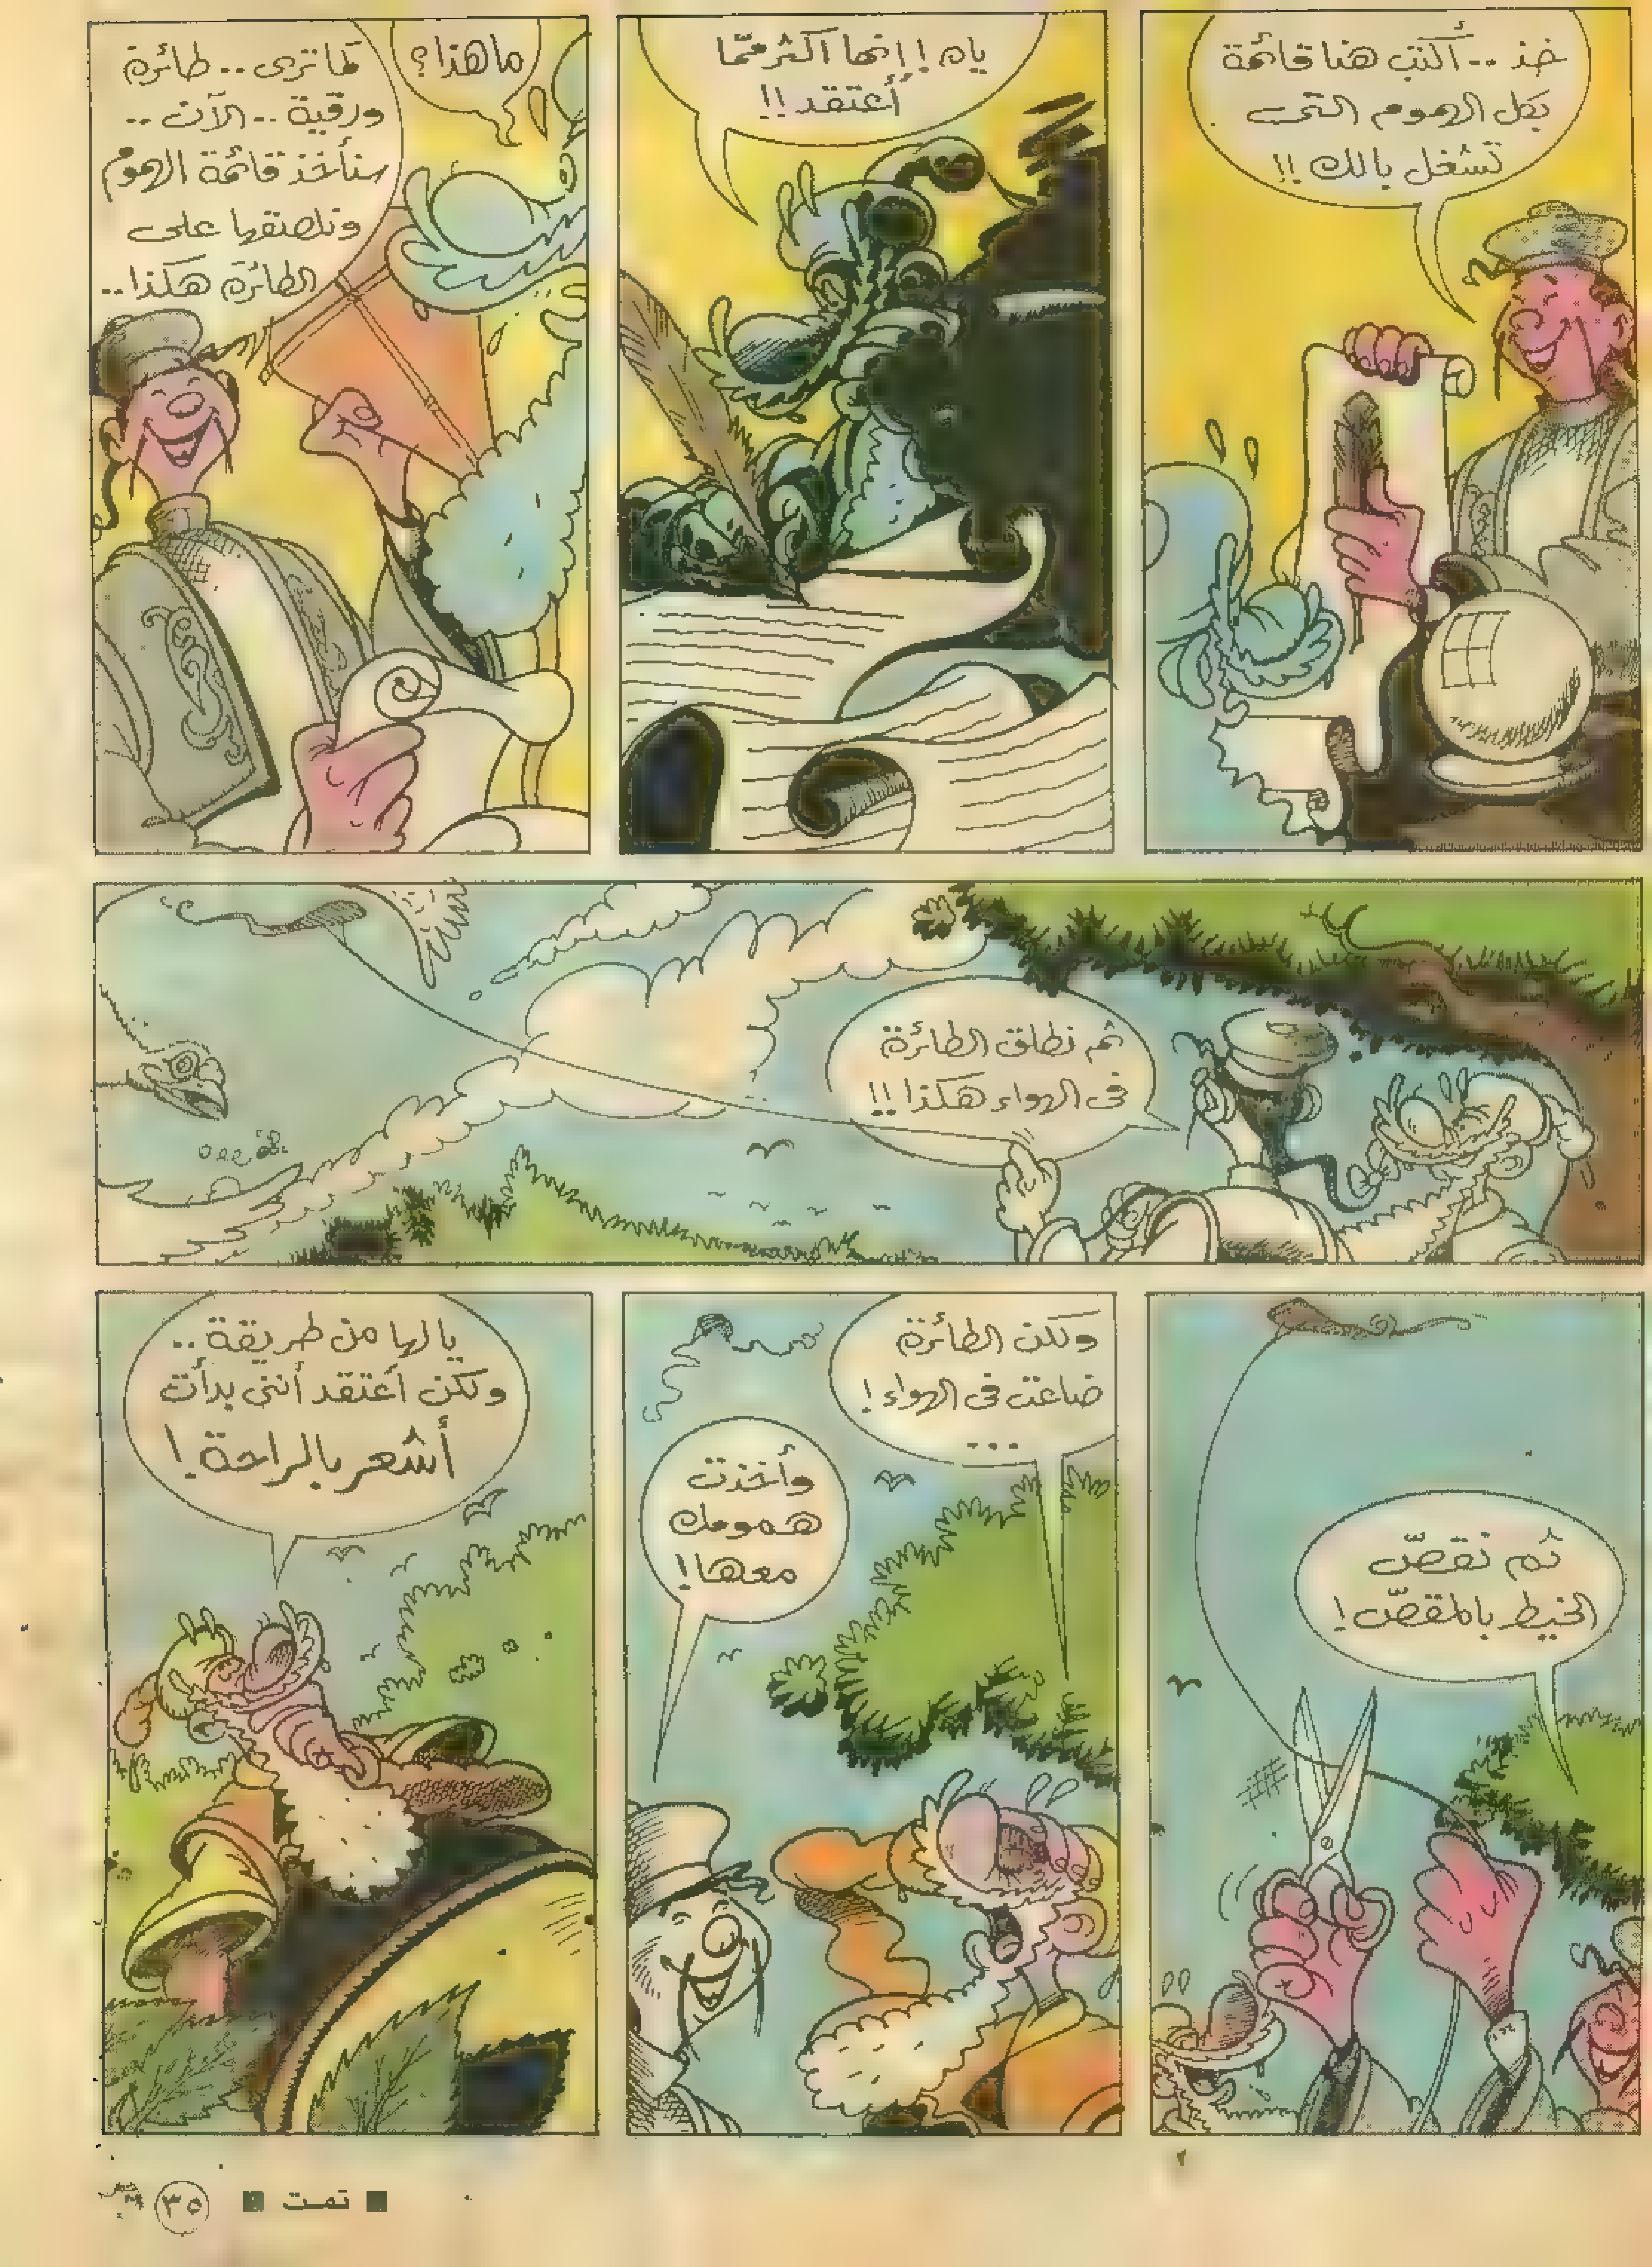 خذ .. أكتب هنا قائمة
بكل الهموم التى
تشغل بالك !!
ياه !! إنها أكثر ممّا
أعتقد !!
ما هذا ؟
كما ترى .. طائرة
ورقية .. الآن ..
سنأخذ قائمة الهموم
ونلصقها على
الطائرة هكذا ..
ثم نطلق الطائرة
فى الهواء هكذا !!
ثم نقصّ
الخيط بالمقصّ !
ولكن الطائرة
ضاعت فى الهواء !
...
وأخذت
همومك
معها !
يالها من طريقة ..
ولكن أعتقد أننى بدأت
أشعر بالراحة !
■ تمت ■
٣٥